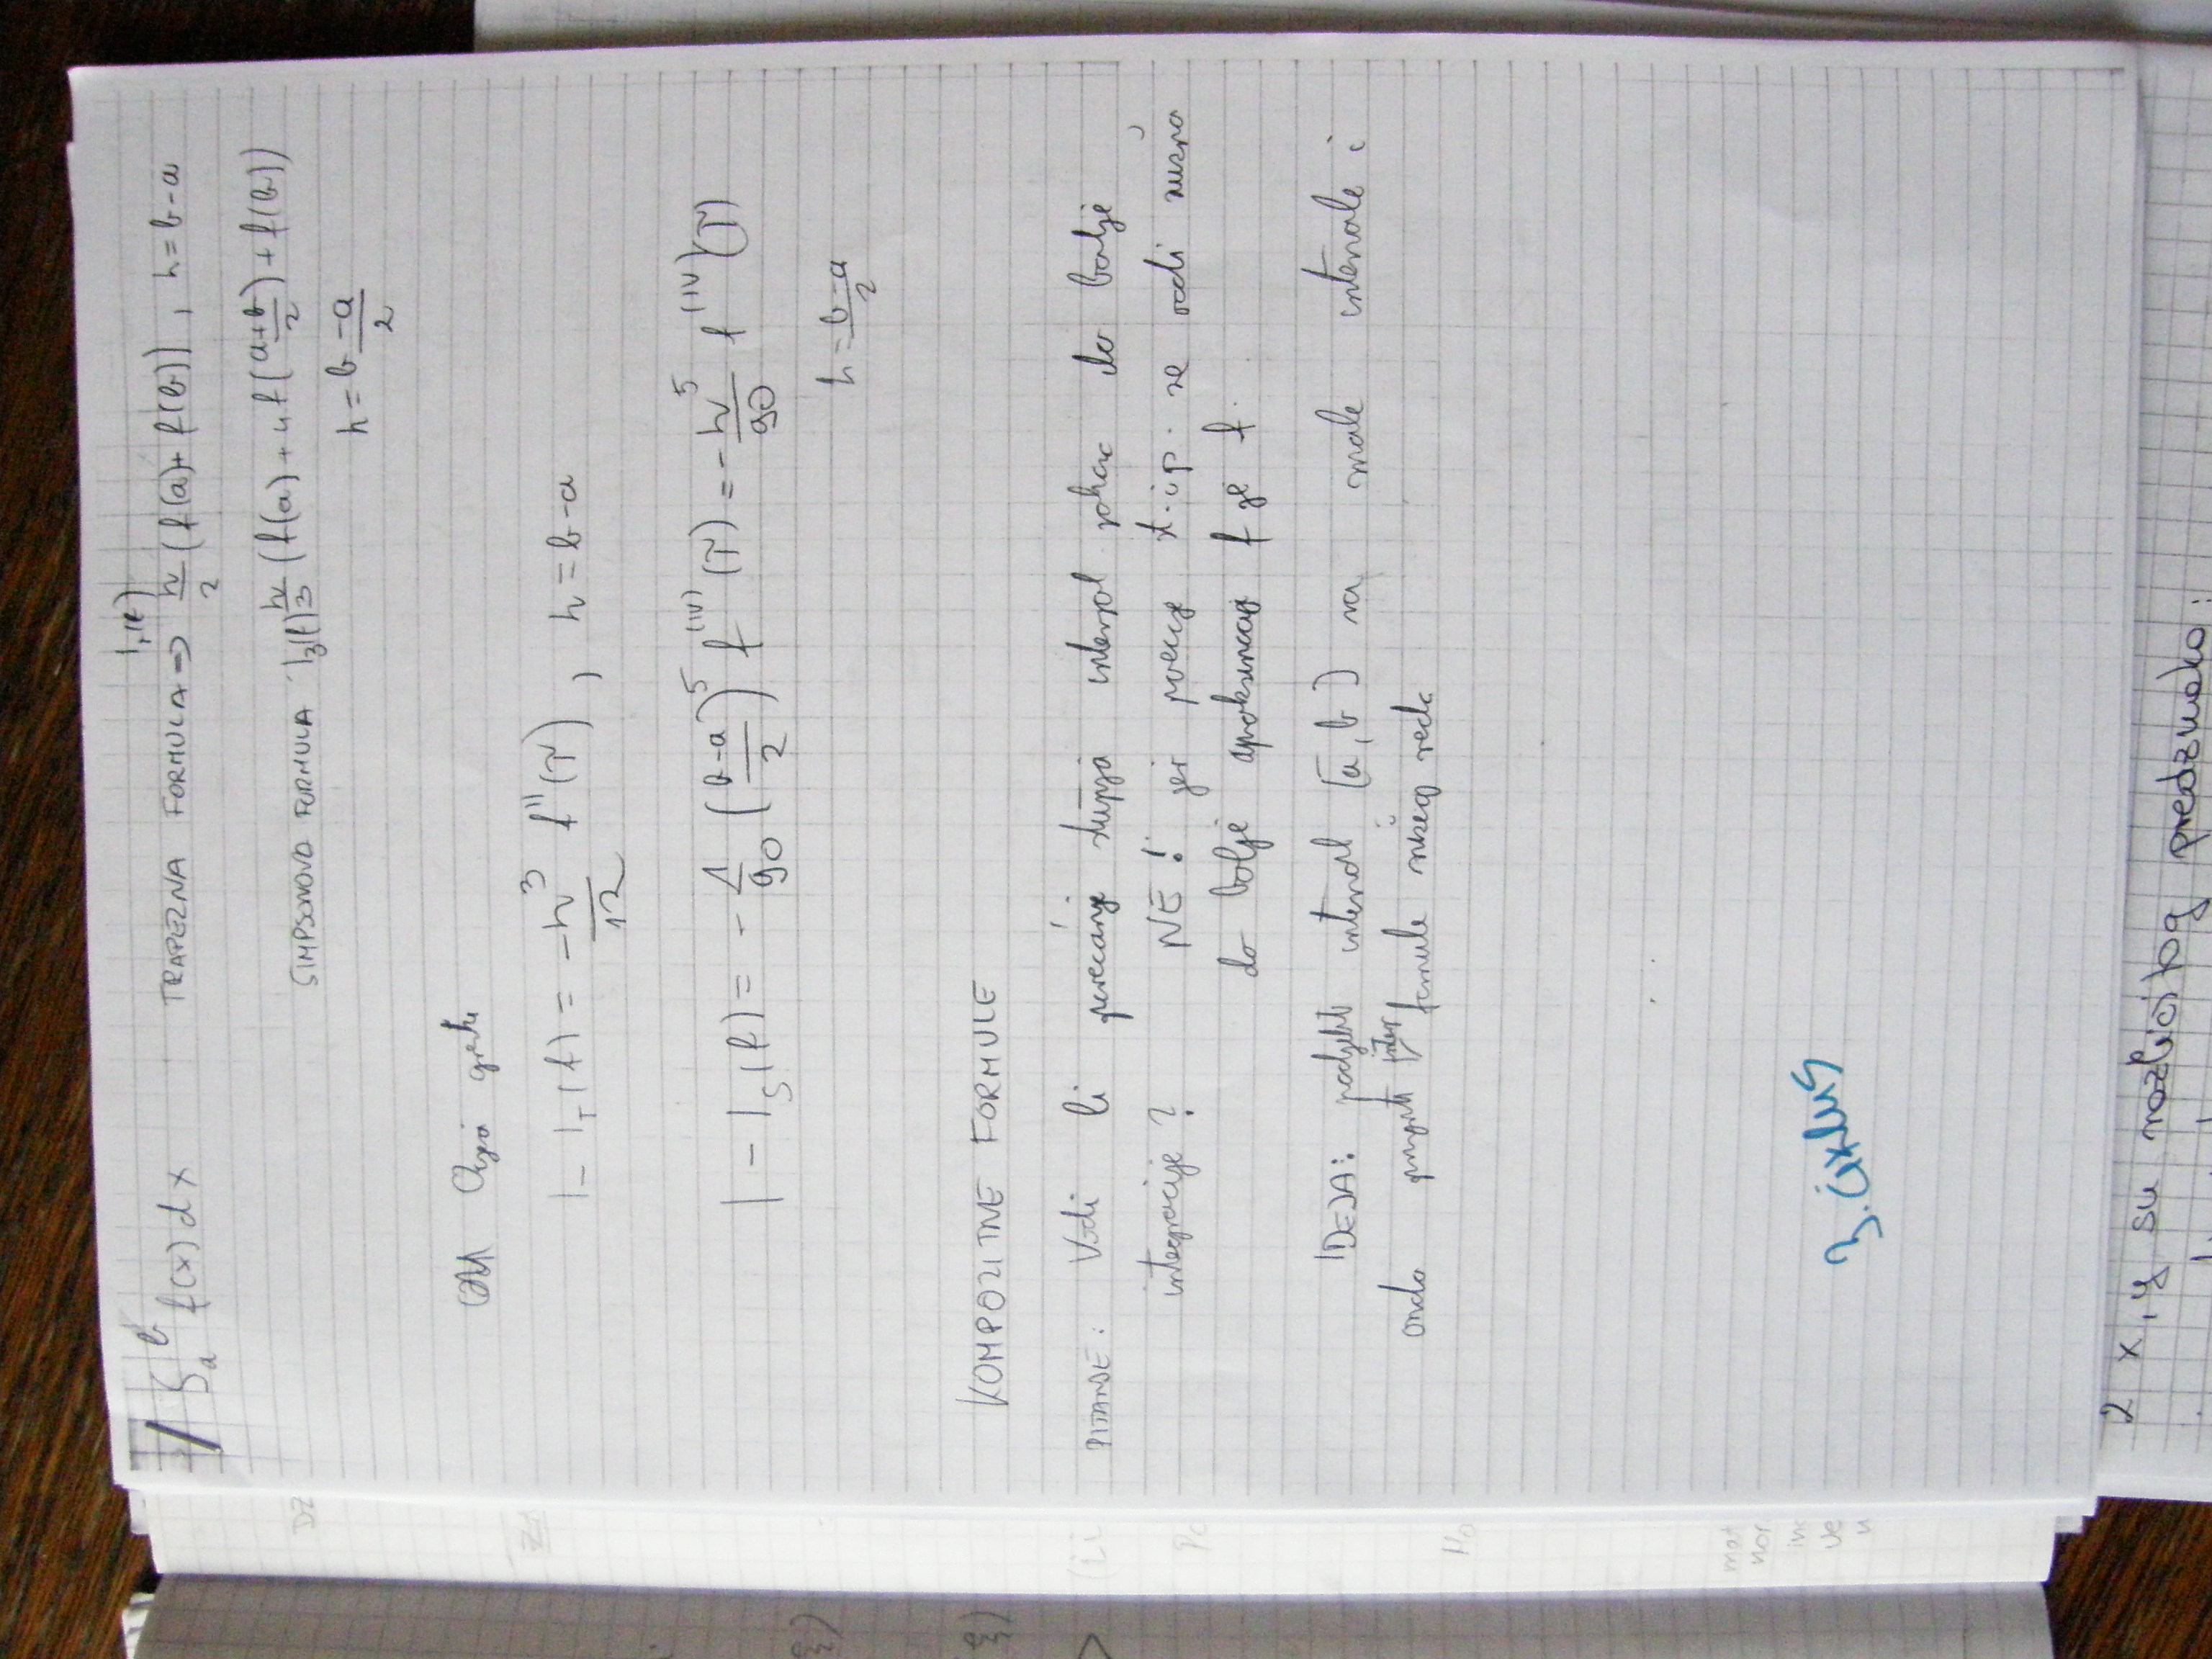 ∫ₐᵇ f(x)dx TRAPEZNA FORMULA ⇒ h/2 (f(a)+f(b)), h=b-a
SIMPSONOVA FORMULA h/3 (f(a)+4f(a+b/2)+f(b))
h=b-a/2
grešk
I-I_T(f) = -h³/12 f''(τ), h=b-a
I-I_S(f) = -1/90 (b-a/2)⁵ f^(IV)(τ) = -h⁵/90 f^(IV)(τ)
h=b-a/2
KOMPOZITIVE FORMULE
PITANJE: Vodi li povećanje stupnja interpol do bolje
integracije?
NE! jer povećanje st. i.p. ne vodi nužno
do bolje aproksimacije f je f.
IDEJA: podijeliti interval [a,b] na male intervale i
onda formule nižeg reda
3. ciklus
2 x, y su različitog predznaka: